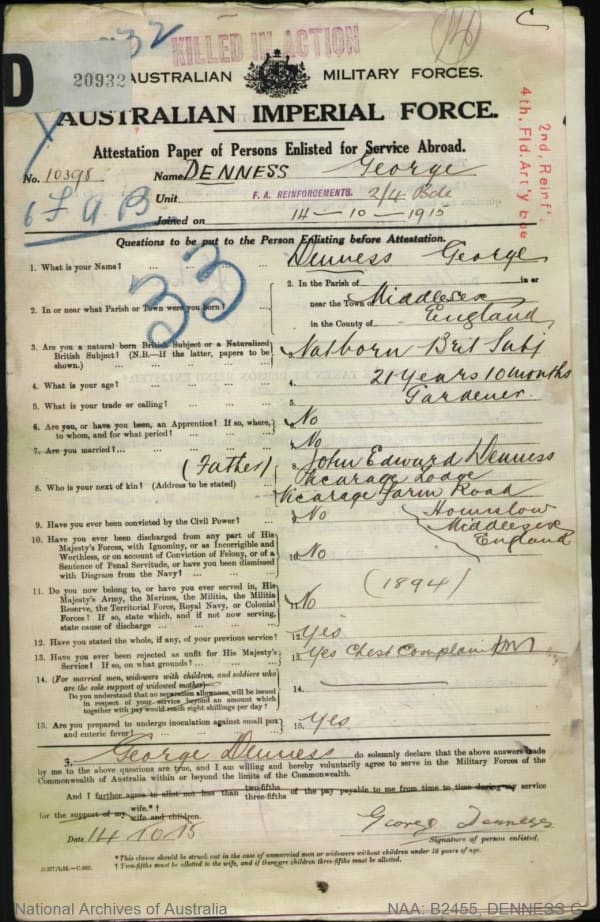 32
KILLED IN ACTION
D
20932
AUSTRALIAN MILITARY FORCES.
AUSTRALIAN IMPERIAL FORCE.
Attestation Paper of Persons Enlisted for Service Abroad.
2nd, Reinf'.
4th, Fld. Art'y
No. 10398 Name DENNESS George
Unit F. A. REINFORCEMENTS. 2/4 Bde
6 F A B
Joined on 14-10-1915
Questions to be put to the Person Enlisting before Attestation.
33
1. What is your Name? ... Denness George
2. In or near what Parish or Town were you born? ... 2. In the Parish of in or
near the Town of Middlesex
in the County of England
3. Are you a natural born British Subject or a Naturalized British Subject? (N.B.—If the latter, papers to be shown.) ... 3. Natborn Brit Subj
4. What is your age? ... 4. 21 Years 10 months
5. What is your trade or calling? ... 5. Gardener.
6. Are you, or have you been, an Apprentice? If so, where, to whom, and for what period? ... 6. No
7. Are you married? ... 7. No
8. Who is your next of kin? (Address to be stated) ... (Father) 8. John Edward Denness
Vicarage Lodge
Vicarage Farm Road
Hounslow
Middlesex
England
9. Have you ever been convicted by the Civil Power? ... 9. No
10. Have you ever been discharged from any part of His Majesty's Forces, with Ignominy, or as Incorrigible and Worthless, or on account of Conviction of Felony, or of a Sentence of Penal Servitude, or have you been dismissed with Disgrace from the Navy? ... 10. No
(1894)
11. Do you now belong to, or have you ever served in, His Majesty's Army, the Marines, the Militia, the Militia Reserve, the Territorial Force, Royal Navy, or Colonial Forces? If so, state which, and if not now serving, state cause of discharge ... 11. No
12. Have you stated the whole, if any, of your previous service? 12. Yes
13. Have you ever been rejected as unfit for His Majesty's Service? If so, on what grounds? ... 13. Yes Chest Complaint
14. (For married men, widowers with children, and soldiers who are the sole support of widowed mother)
Do you understand that no separation allowance will be issued in respect of your service beyond an amount which together with pay would reach eight shillings per day? 14.
15. Are you prepared to undergo inoculation against small pox and enteric fever? ... 15. Yes
I, George Denness do solemnly declare that the above answers made
by me to the above questions are true, and I am willing and hereby voluntarily agree to serve in the Military Forces of the
Commonwealth of Australia within or beyond the limits of the Commonwealth.
And I further agree to allot not less than two-fifths three-fifths of the pay payable to me from time to time during my service
for the support of my wife.*† wife and children.
Date 14 10 15 George Denness
Signature of person enlisted.
* This clause should be struck out in the case of unmarried men or widowers without children under 18 years of age.
† Two-fifths must be allotted to the wife, and if there are children three-fifths must be allotted.
National Archives of Australia NAA: B2455, DENNESS G